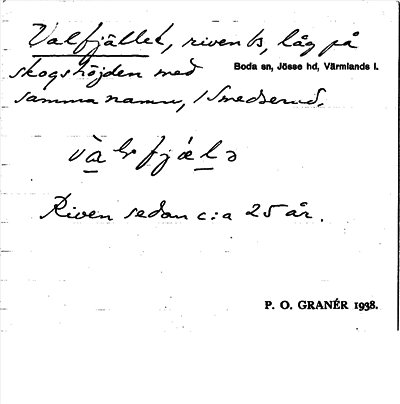 Valfjället, riven ts, låg på
skogshöjden med
Boda sn, Jösse hd, Värmlands l.
samma namn, i Smedserud.
Riven sedan c:a 25 år.
P. O. GRANÉR 1938.